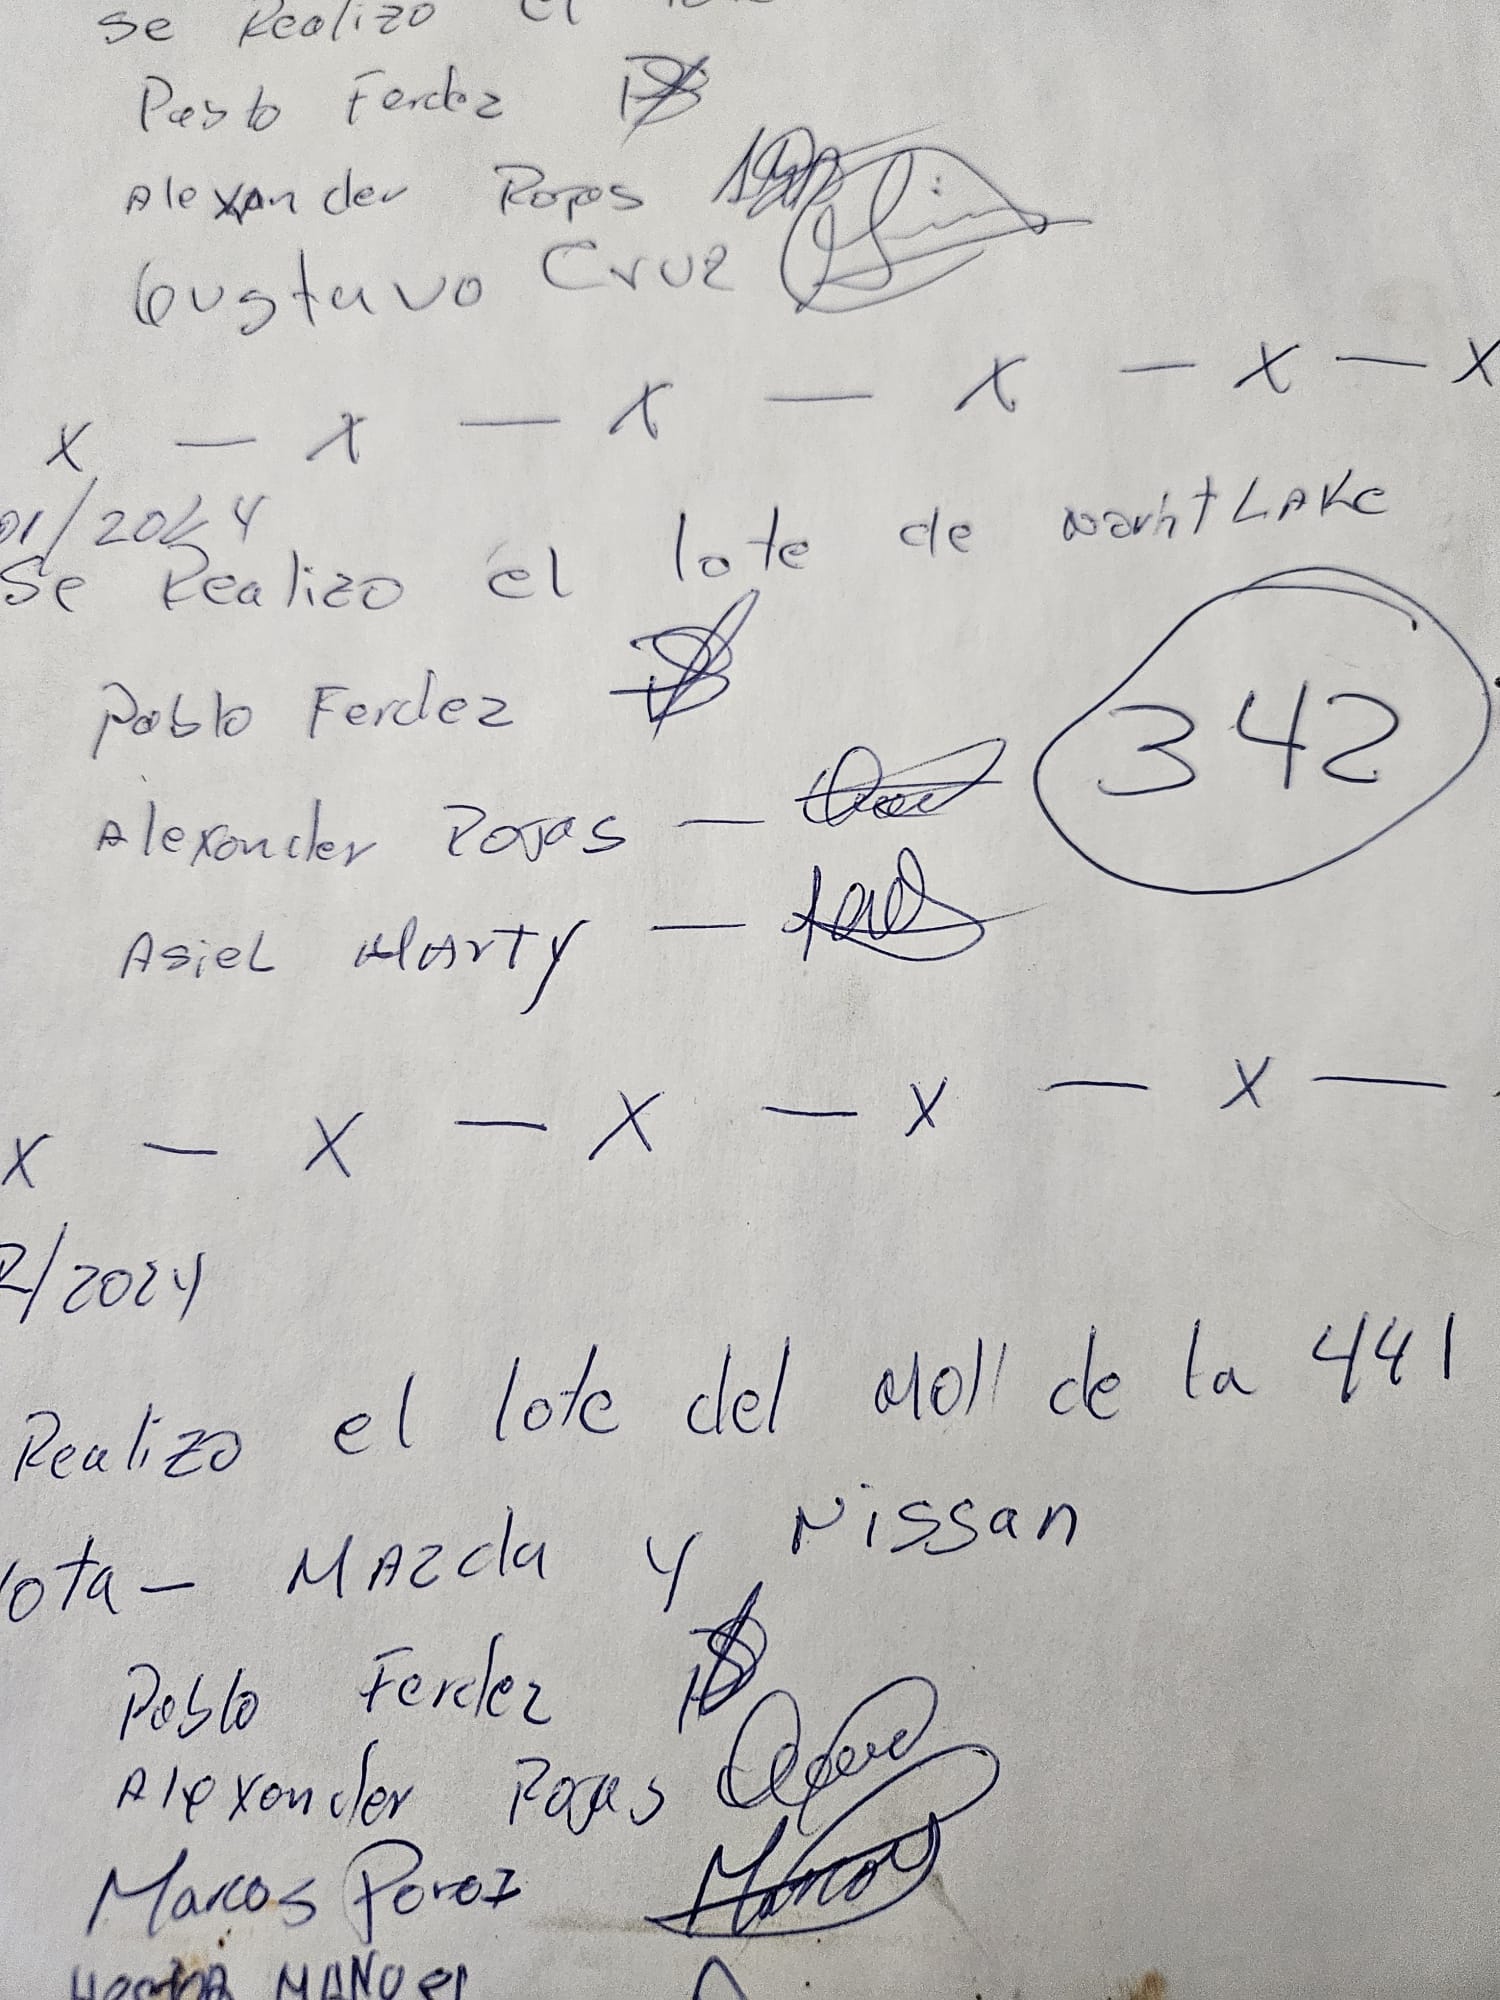 Se Realizo el
Pablo Ferdez
Alexander Rojas
Gustavo Cruz
X — X — X — X — X — X
01/2024
Se Realizo el lote de NorhtLAKe
Pablo Ferdez
342
Alexander Rojas —
Asiel Marty —
X — X — X — X — X —
2/2024
Realizo el lote del Moll de la 441
ota — MAzda y Nissan
Pablo Ferdez
Alexander Rojas
Marcos Perez Marcos
MANUel